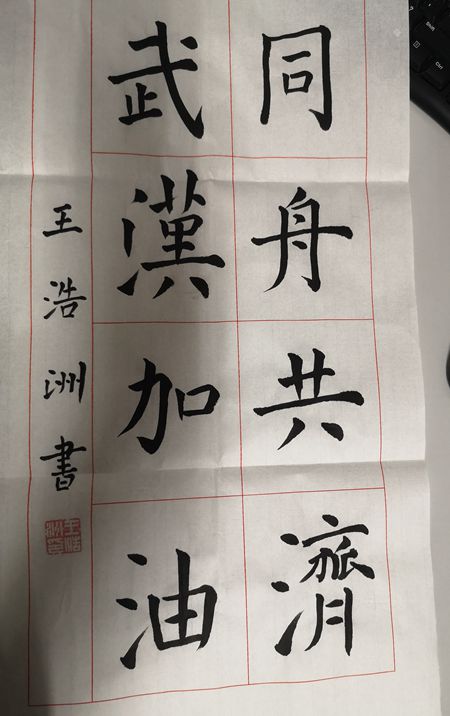 同舟共濟
武漢加油
王浩洲書
王浩洲印
Shift
Ctrl